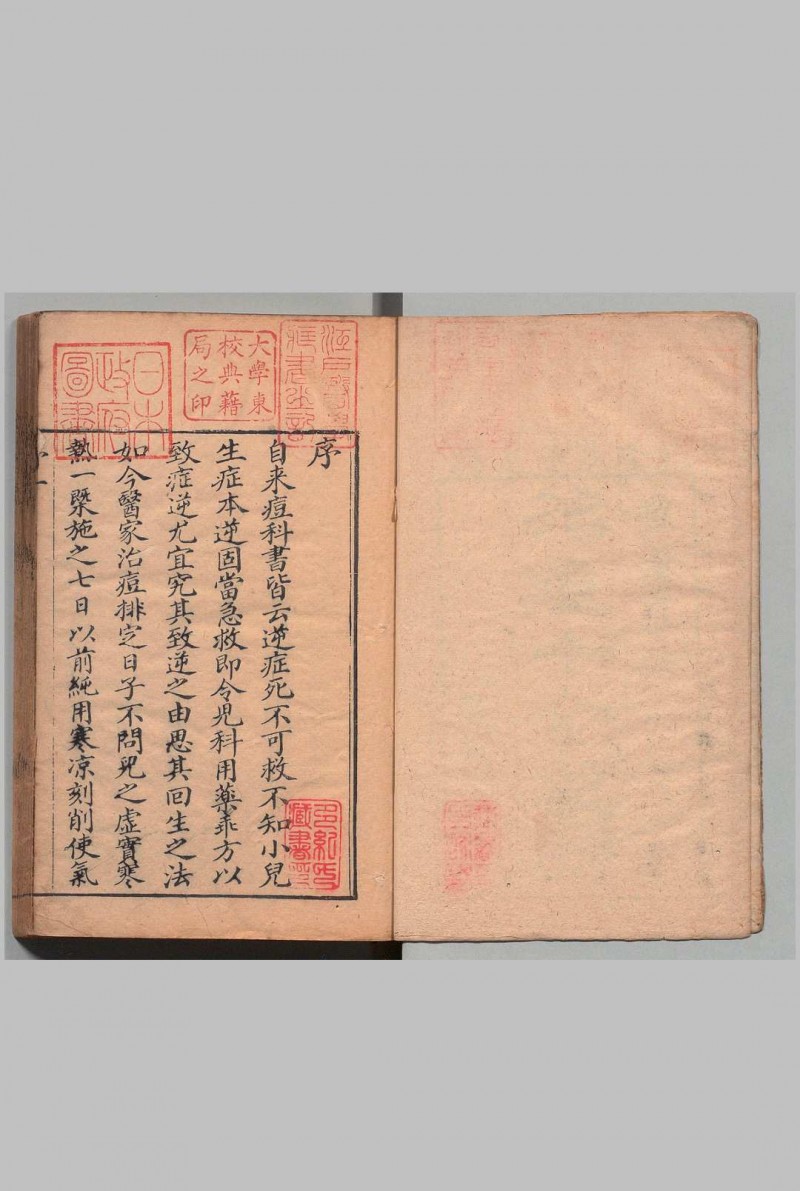 序
自来痘科書皆云逆症死不可救不知小兒
生症本逆固當急救即令児科用藥乖方以
致症逆尤宜究其致逆之由思其回生之法
如今醫家治痘排定日子不問兒之虛實寒
熱一槩施之七日以前純用寒凉刻削使氣
序 一
大學東
校典藉
局之印
日本
政府
圖書